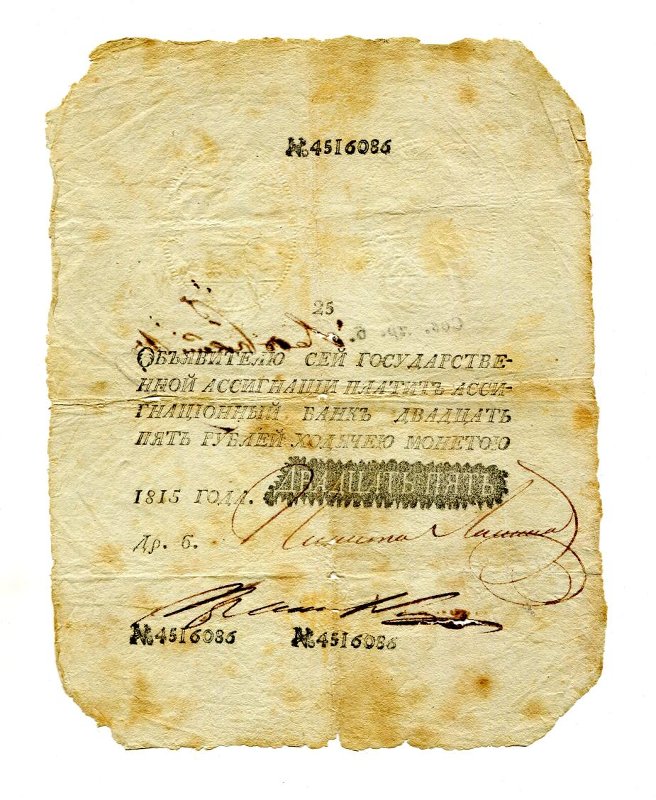 №4516086
25
Объявителю сей государстве-
нной ассигнации платитъ асси-
гнаціонный банкъ двадцать
пять рублей ходячею монетою
1815 года. двадцать пять
Др. 6.
№4516086 №4516086